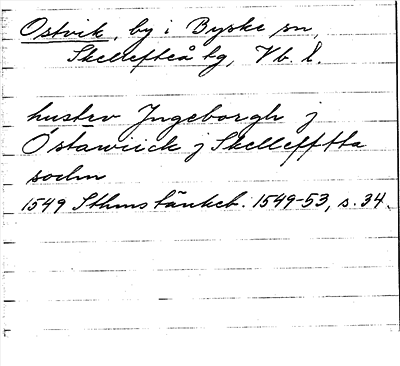 Ostvik, by i Byske sn,
Skellefteå tg, Vb. l.
hustrv Jngeborgh j
Östawiick j Skellefftta
sochn
1549 Sthms tänkeb. 1549-53, s. 34.